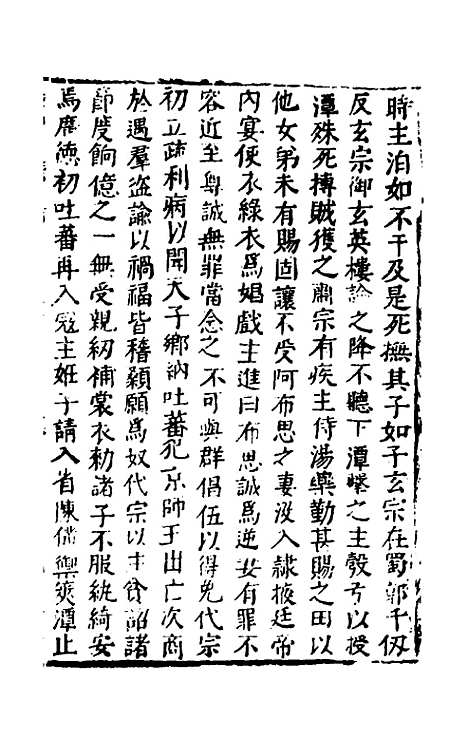 時主泊如不干及是死撫其子如子玄宗在蜀郭千仞
反玄宗御玄英樓論之降不聽下潭率之主彀弓以授
潭殊死搏賊獲之肅宗有疾主侍湯藥勤甚賜之田以
他女弟未有賜固讓不受阿布思之妻沒入隸掖廷帝
內宴使衣綠衣爲娼戲主進曰布思誠爲逆妻有罪不
容近至尊誠無罪當念之不可與群倡伍以得免代宗
初立疏利病以聞天子鄉納吐蕃犯京師主出亡次商
於遇羣盜諭以禍福皆稽顙願爲奴代宗以主貧詔諸
節度餉億之一無受親紉補裳衣勅諸子不服紈綺安
焉廣德初吐蕃再入寇主妊子請入省陳備禦策潭止